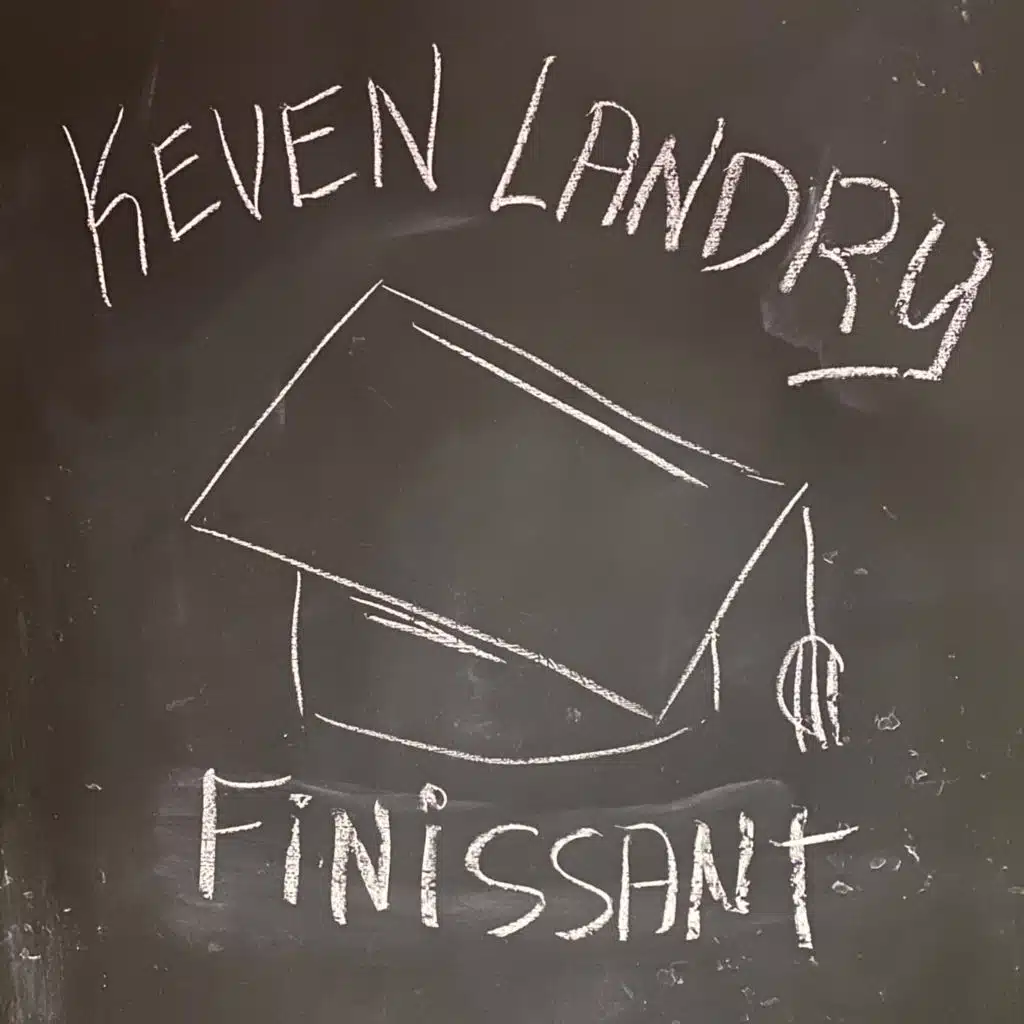 KEVEN LANDRY
FiNiSSANT